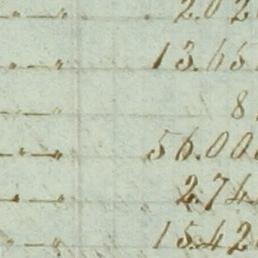 " — " 2.02
" — " 13.65
" — " 8
" — " 56.00
" — " 2.74
" — " 15.42